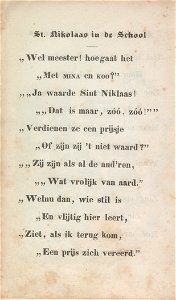 St. Nikolaas in de School
„Wel meester! hoegaat het
„Met MINA en KOO?"
„„Ja waarde Sint Niklaas!
„„Dat is maar, zóó. zóó!""
„Verdienen ze een prijsje
„Of zijn zij 't niet waard?"
„„Zij zijn als al de and'ren,
„„Wat vrolijk van aard."
„Welnu dan, wie stil is
„En vlijtig hier leert,
„Ziet, als ik terug kom,
„Een prijs zich vereerd."